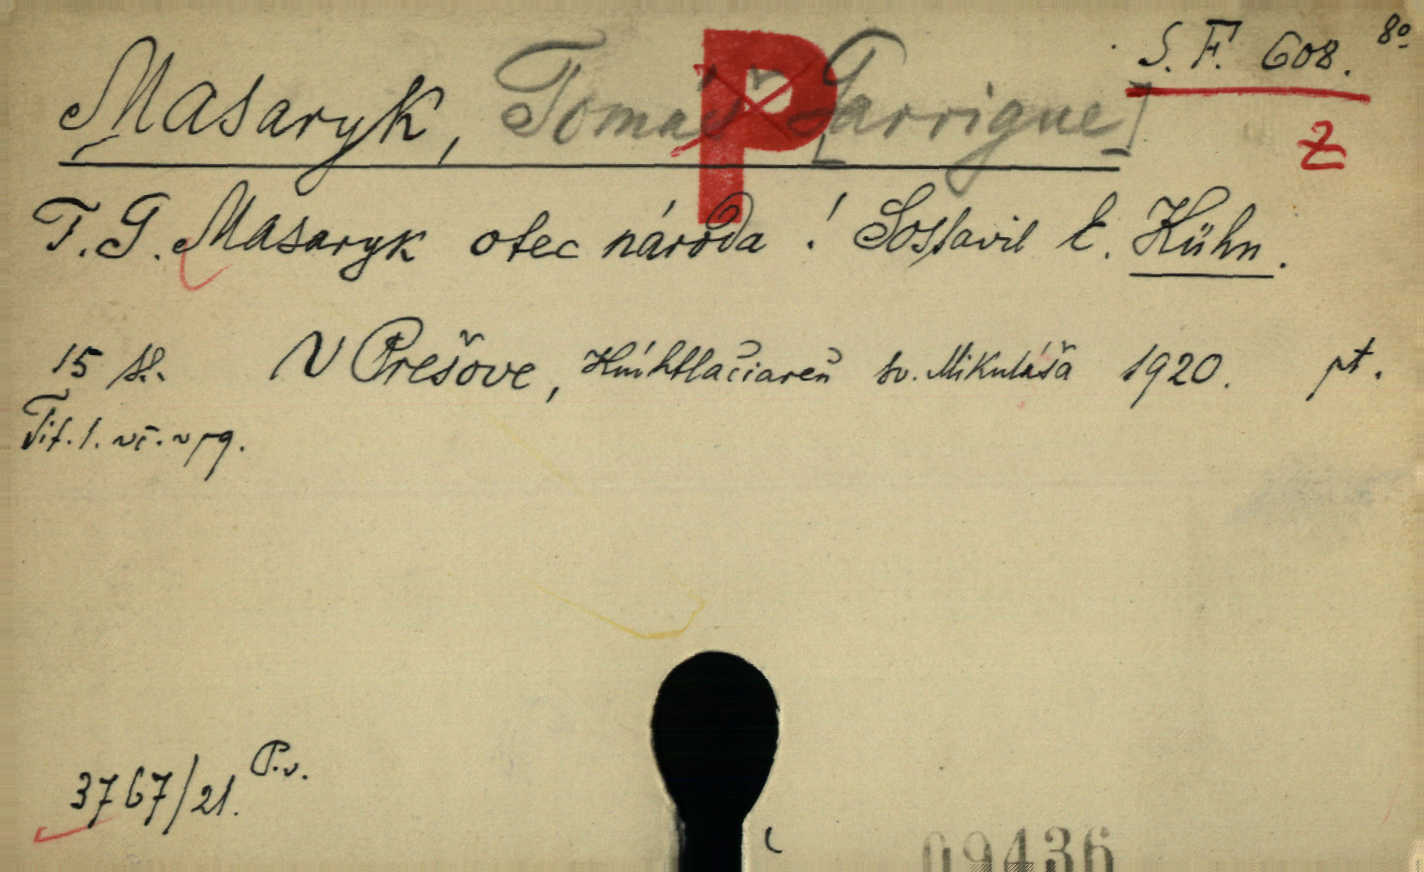 S. F. 608. 8º
Masaryk, Tomáš [Garrigue]
P
Z
T. G. Masaryk otec národa! Sostavil E. Kühn.
15 st. V Prešove, Kníhtlačiareň sv. Mikuláša 1920. pt.
Tit. l. vč. v pg.
3767/21. P.v.
09436